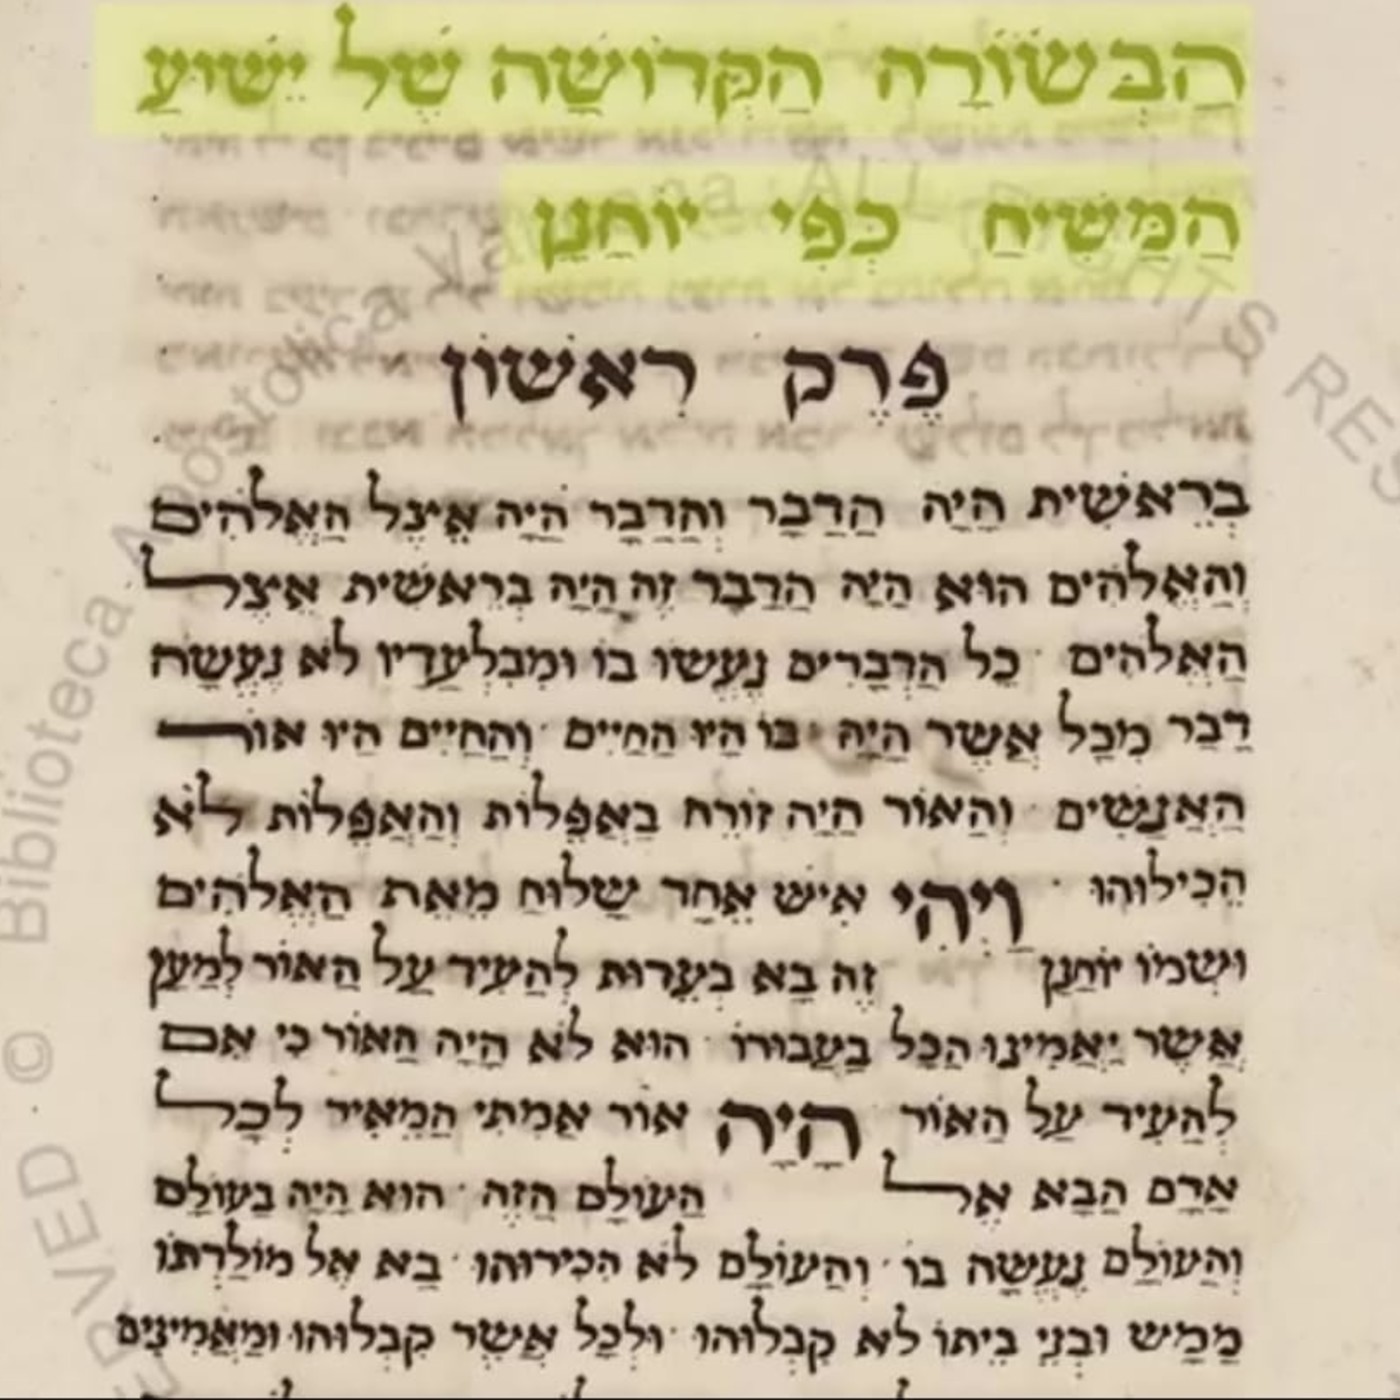 הַבְּשׂוֹרָה הַקְּדוֹשָׁה שֶׁל יֵשׁוּעַ
הַמָּשִׁיחַ כְּפִי יוֹחָנָן
פֶּרֶק רִאשׁוֹן
בְּרֵאשִׁית הָיָה הַדָּבָר וְהַדָּבָר הָיָה אֵיצֶל הָאֱלֹהִים
וְהָאֱלֹהִים הוּא הָיָה הַדָּבָר זֶה הָיָה בְּרֵאשִׁית אֵיצֶל
הָאֱלֹהִים · כָּל הַדְּבָרִים נַעֲשׂוּ בוֹ וּמִבַּלְעָדָיו לֹא נֶעֱשָׂה
דָּבָר מִכָּל אֲשֶׁר הָיָה · בּוֹ הָיוּ הַחַיִּים · וְהַחַיִּים הָיוּ אוֹר
הָאֲנָשִׁים · וְהָאוֹר הָיָה זוֹרֵחַ בַּאֲפֵלוֹת וְהָאֲפֵלוֹת לֹא
הֱכִילוּהוּ · וַיְהִי אִישׁ אֶחָד שָׁלוּחַ מֵאֵת הָאֱלֹהִים
וּשְׁמוֹ יוֹחָנָן זֶה בָּא בְּעֵדוּת לְהָעִיד עַל הָאוֹר לְמַעַן
אֲשֶׁר יַאֲמִינוּ הַכָּל בַּעֲבוּרוֹ · הוּא לֹא הָיָה הָאוֹר כִּי אִם
לְהָעִיד עַל הָאוֹר הָיָה אוֹר אֲמִתִּי הַמֵּאִיר לְכָל
אָדָם הַבָּא אֶל הָעוֹלָם הַזֶּה · הוּא הָיָה בָּעוֹלָם
וְהָעוֹלָם נַעֲשָׂה בוֹ · וְהָעוֹלָם לֹא הִכִּירוּהוּ · בָּא אֶל מוֹלַדְתּוֹ
מַמָּשׁ וּבְנֵי בֵיתוֹ לֹא קִבְּלוּהוּ · וּלְכָל אֲשֶׁר קִבְּלוּהוּ וּמַאֲמִינִים
© Biblioteca Apostolica Vaticana ALL RIGHTS RESERVED